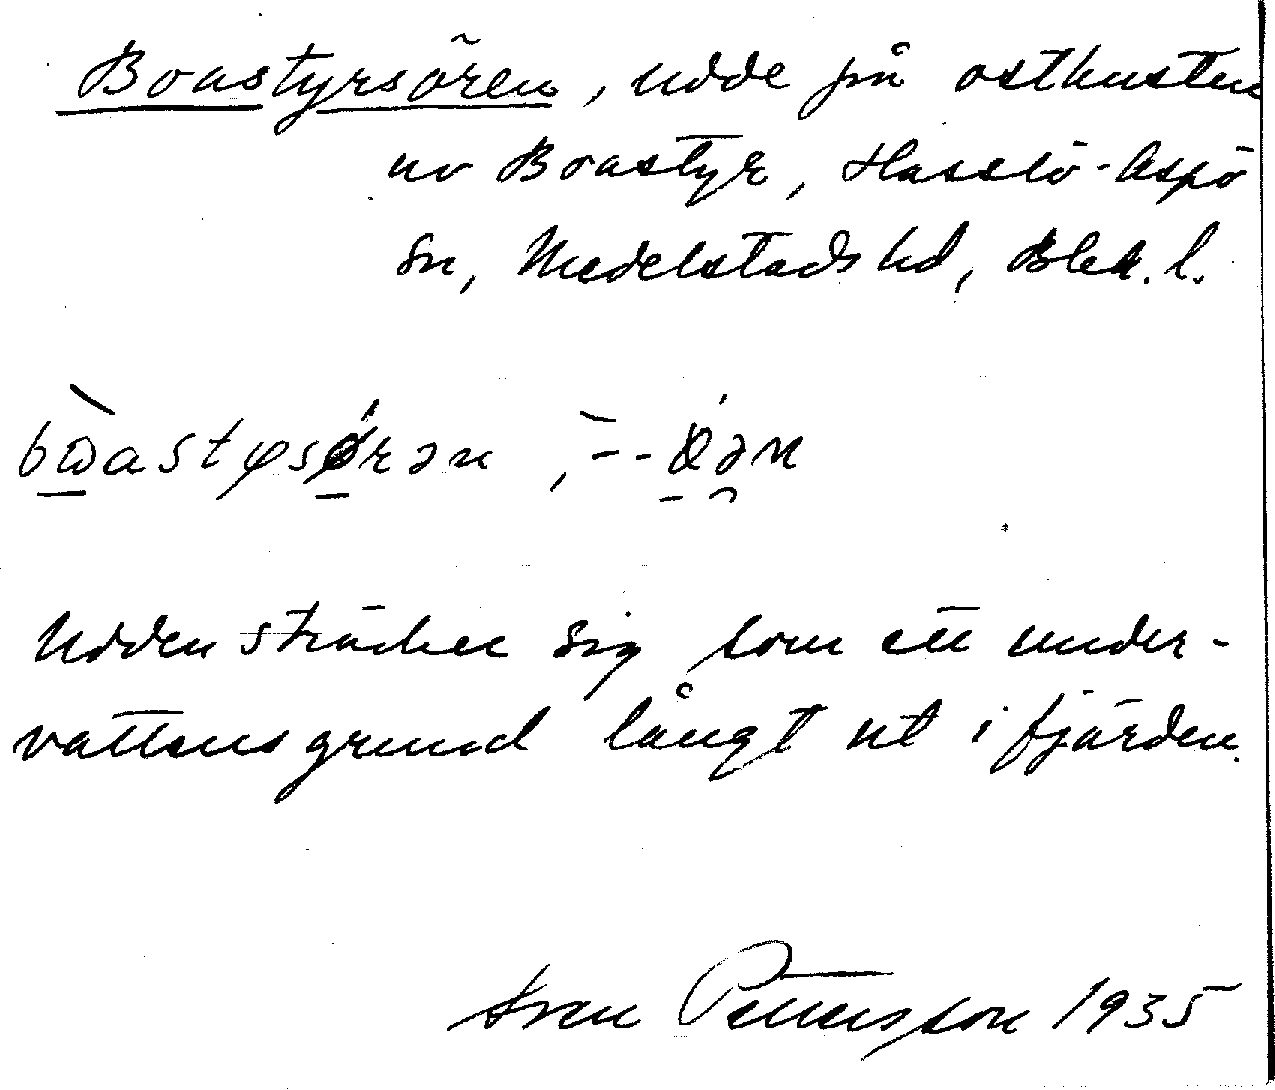 Boastyrsören, udde på ostkusten
av Boastyr, Hasslö-Aspö
sn, Medelstads hd, Blek. l.
Udden sträcker sig som ett under-
vattensgrund långt ut i fjärden.
Sven Pettersson 1935